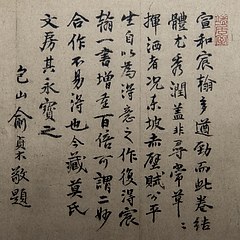 宣和宸翰多遒勁而此卷結
體尤秀潤蓋非尋常草草
揮洒者況東坡赤壁賦公平
生自以為得意之作復得宸
翰一書增重百倍可謂二妙
合作不易得也今藏莫氏
文房其永寶之
包山俞貞木敬題